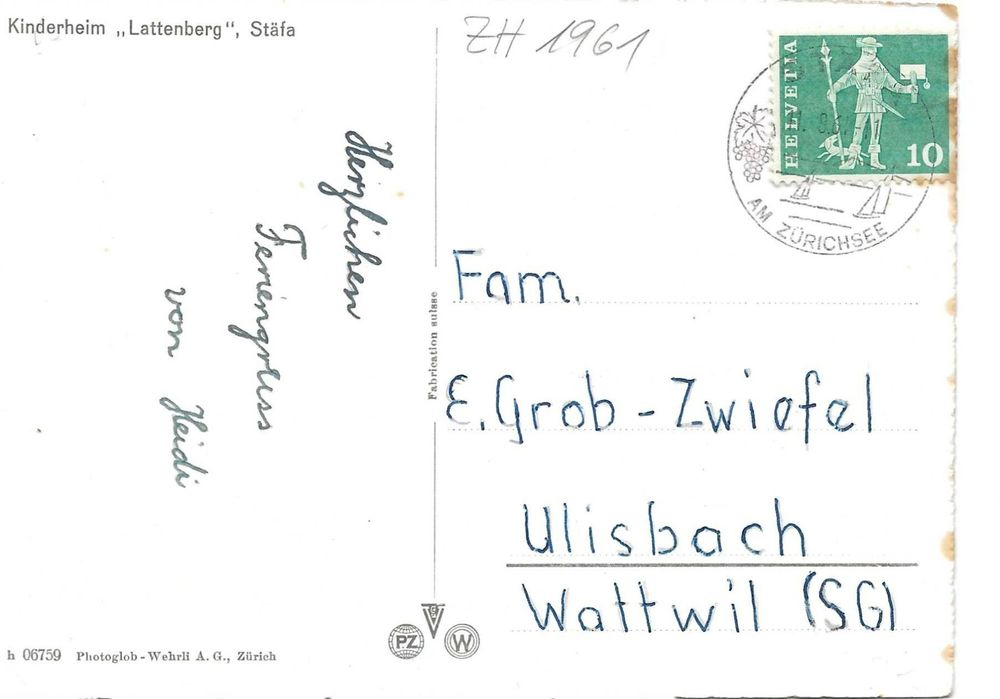 Kinderheim „Lattenberg“, Stäfa
ZH 1961
HELVETIA
10
AM ZÜRICHSEE
Herzlichen
Feriengruss
von Heidi
Fabrication suisse
Fam.
E. Grob - Zwiefel
Ulisbach
Wattwil (SG)
PZ
W
h 06759 Photoglob-Wehrli A. G., Zürich